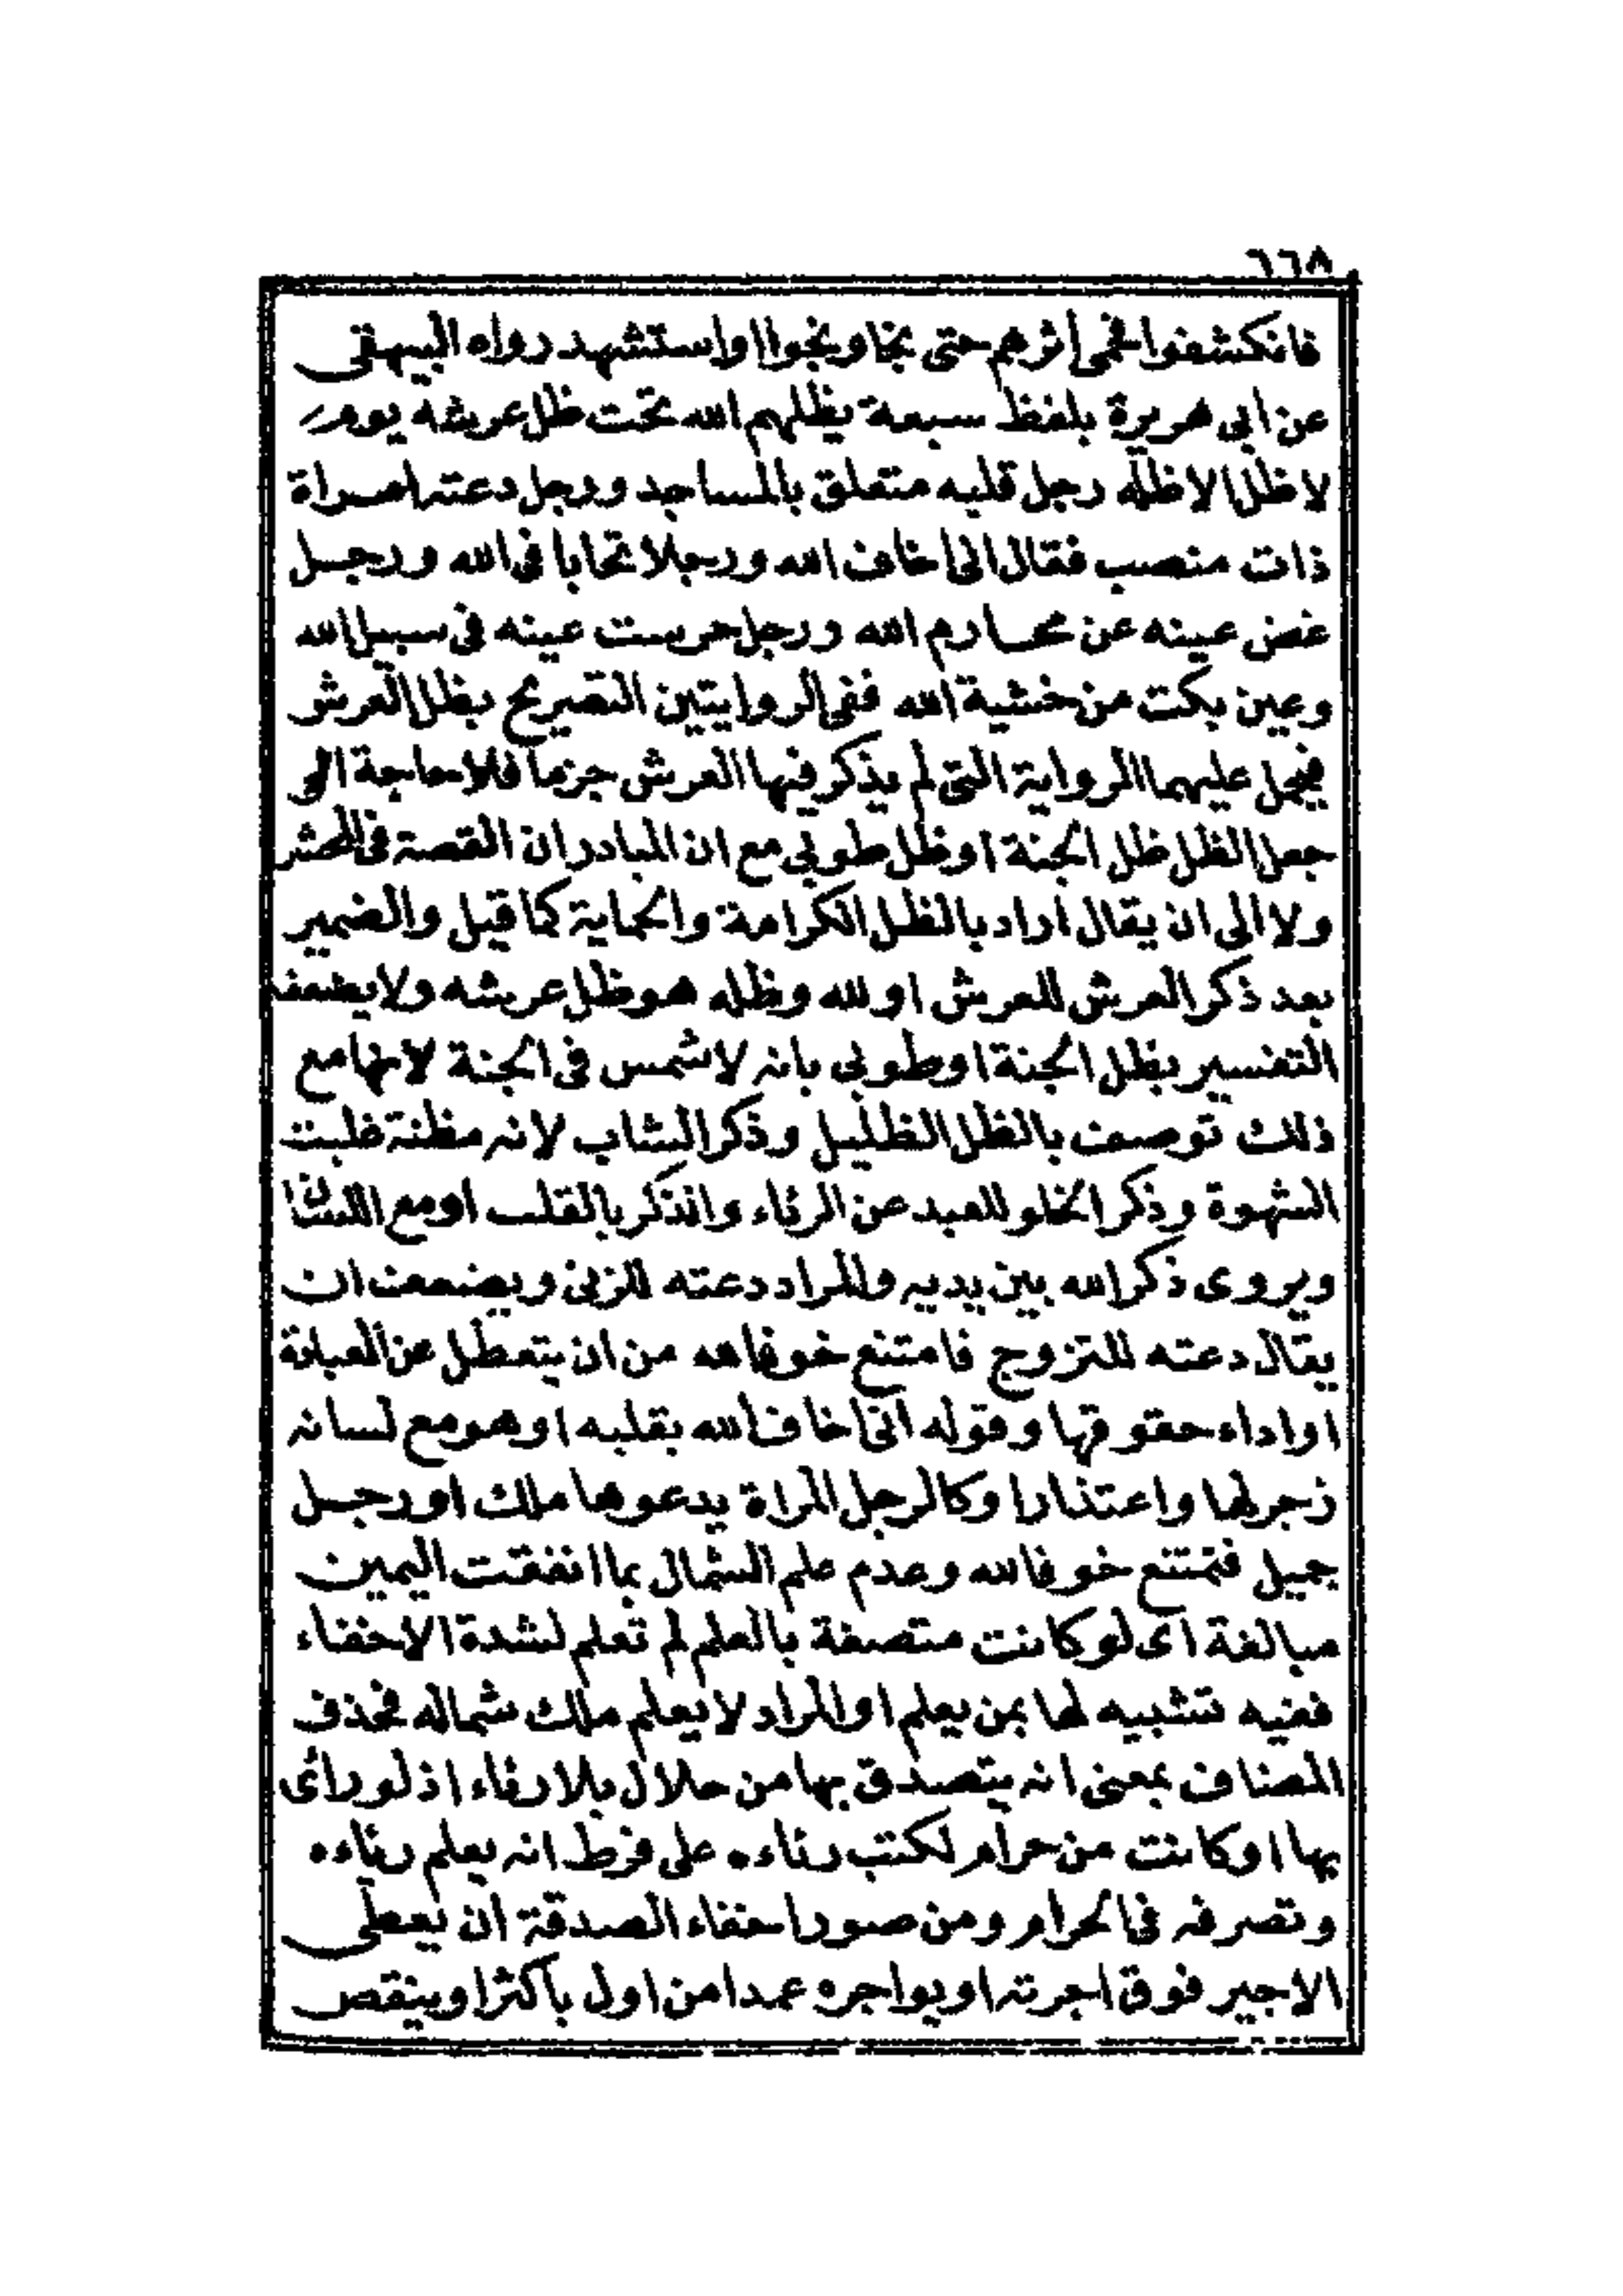 ٦٦٨
فانكشفوا فحمى أثرهم حتى نجا ونجوا او استشهد رواه البيهقي
عن ابى هريرة بلفظ سبعة يظلهم الله تحت ظل عرشه يوم
لا ظل الا ظله رجل قلبه متعلق بالمساجد ورجل دعته امراة
ذات منصب فقال انى اخاف الله ورجلا تحابا فى الله ورجل
غض عينه عن محارم الله ورجل حرست عينه فى سبيل الله
وعين بكت من خشية الله ففى الروايتين التصريح بظل العرش
فيحمل عليهما الرواية التى لم يذكر فيها العرش جزما فلا حاجة الى
جعل الظل ظل الجنة او ظل طوبى مع ان المبادر ان القصة فى المحشر
ولا الى ان يقال اراد بالظل الكرامة والحماية كما قيل والضمير
بعد ذكر العرش للعرش او لله وظله هو ظل عرشه ولا يضعف
التفسير بظل الجنة او طوبى بانه لا شمس فى الجنة لانها مع
ذلك توصف بالظل الظليل وذكر الشاب لانه مظنة غلبت
الشهوة وذكر الخلو للعبد عن الرئاء والذكر بالقلب او مع اللسان
ويروى ذكر الله بين يديه والمراد دعته للزنى ويضعف ان
يقال دعته للتزوج فامتنع خوفا لله من ان يتعطل عن العبادة
او اداء حقوقها وقوله انى اخاف الله بقلبه او هو مع لسانه
زجر لها واعتذارا وكالرجل المراة يدعوها ملك او رجل
جميل فتمتنع خوفا لله وعدم علم الشمال بما انفقت اليمين
مبالغة اى لو كانت متصفة بالعلم لم تعلم لشدة الاخفاء
ففيه تشبيه لها بمن يعلم او المراد لا يعلم ملك شماله فحذف
المضاف بمعنى انه يتصدق بها من حلال بلا رئاء اذ لو راى
بها او كانت من حرام لكتب رئاءه على فرط انه يعلم رئاءه
وتصرفه فى الحرام ومن صور اخفاء الصدقة ان يعطى
الاجير فوق اجرته او يواجره عمدا من اول باكثر او ينقص